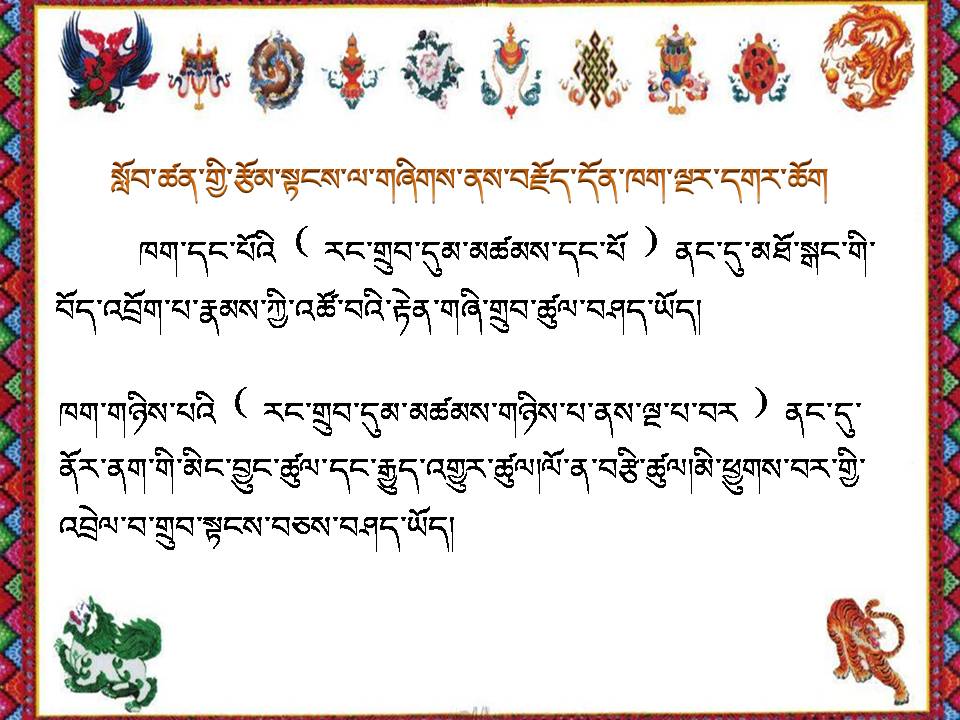 སློབ་ཚན་གྱི་རྩོམ་སྟངས་ལ་གཞིགས་ནས་བརྗོད་དོན་ཁག་ལྔར་དགར་ཆོག
ཁག་དང་པོའི ( རང་གྲུབ་དུམ་མཚམས་དང་པོ ) ནང་དུ་མཐོ་སྒང་གི་
བོད་འབྲོག་པ་རྣམས་ཀྱི་འཚོ་བའི་རྟེན་གཞི་གྲུབ་ཚུལ་བཤད་ཡོད།
ཁག་གཉིས་པའི ( རང་གྲུབ་དུམ་མཚམས་གཉིས་པ་ནས་ལྔ་པ་བར ) ནང་དུ་
ནོར་ནག་གི་མིང་བྱུང་ཚུལ་དང་རྒྱུད་འགྱུར་ཚུལ།ལོ་ན་བརྩི་ཚུལ།མི་ཕྱུགས་བར་གྱི་
འབྲེལ་བ་གྲུབ་སྟངས་བཅས་བཤད་ཡོད།